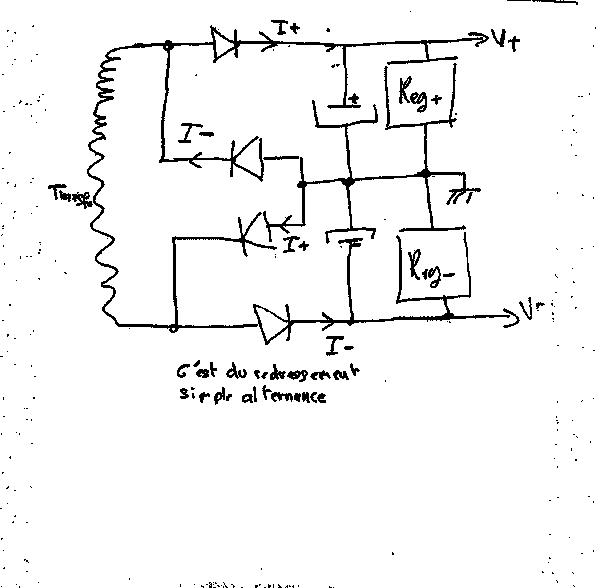 I+
V+
+
Reg+
I-
I+
Reg-
V-
I-
C'est du redressement
simple alternance